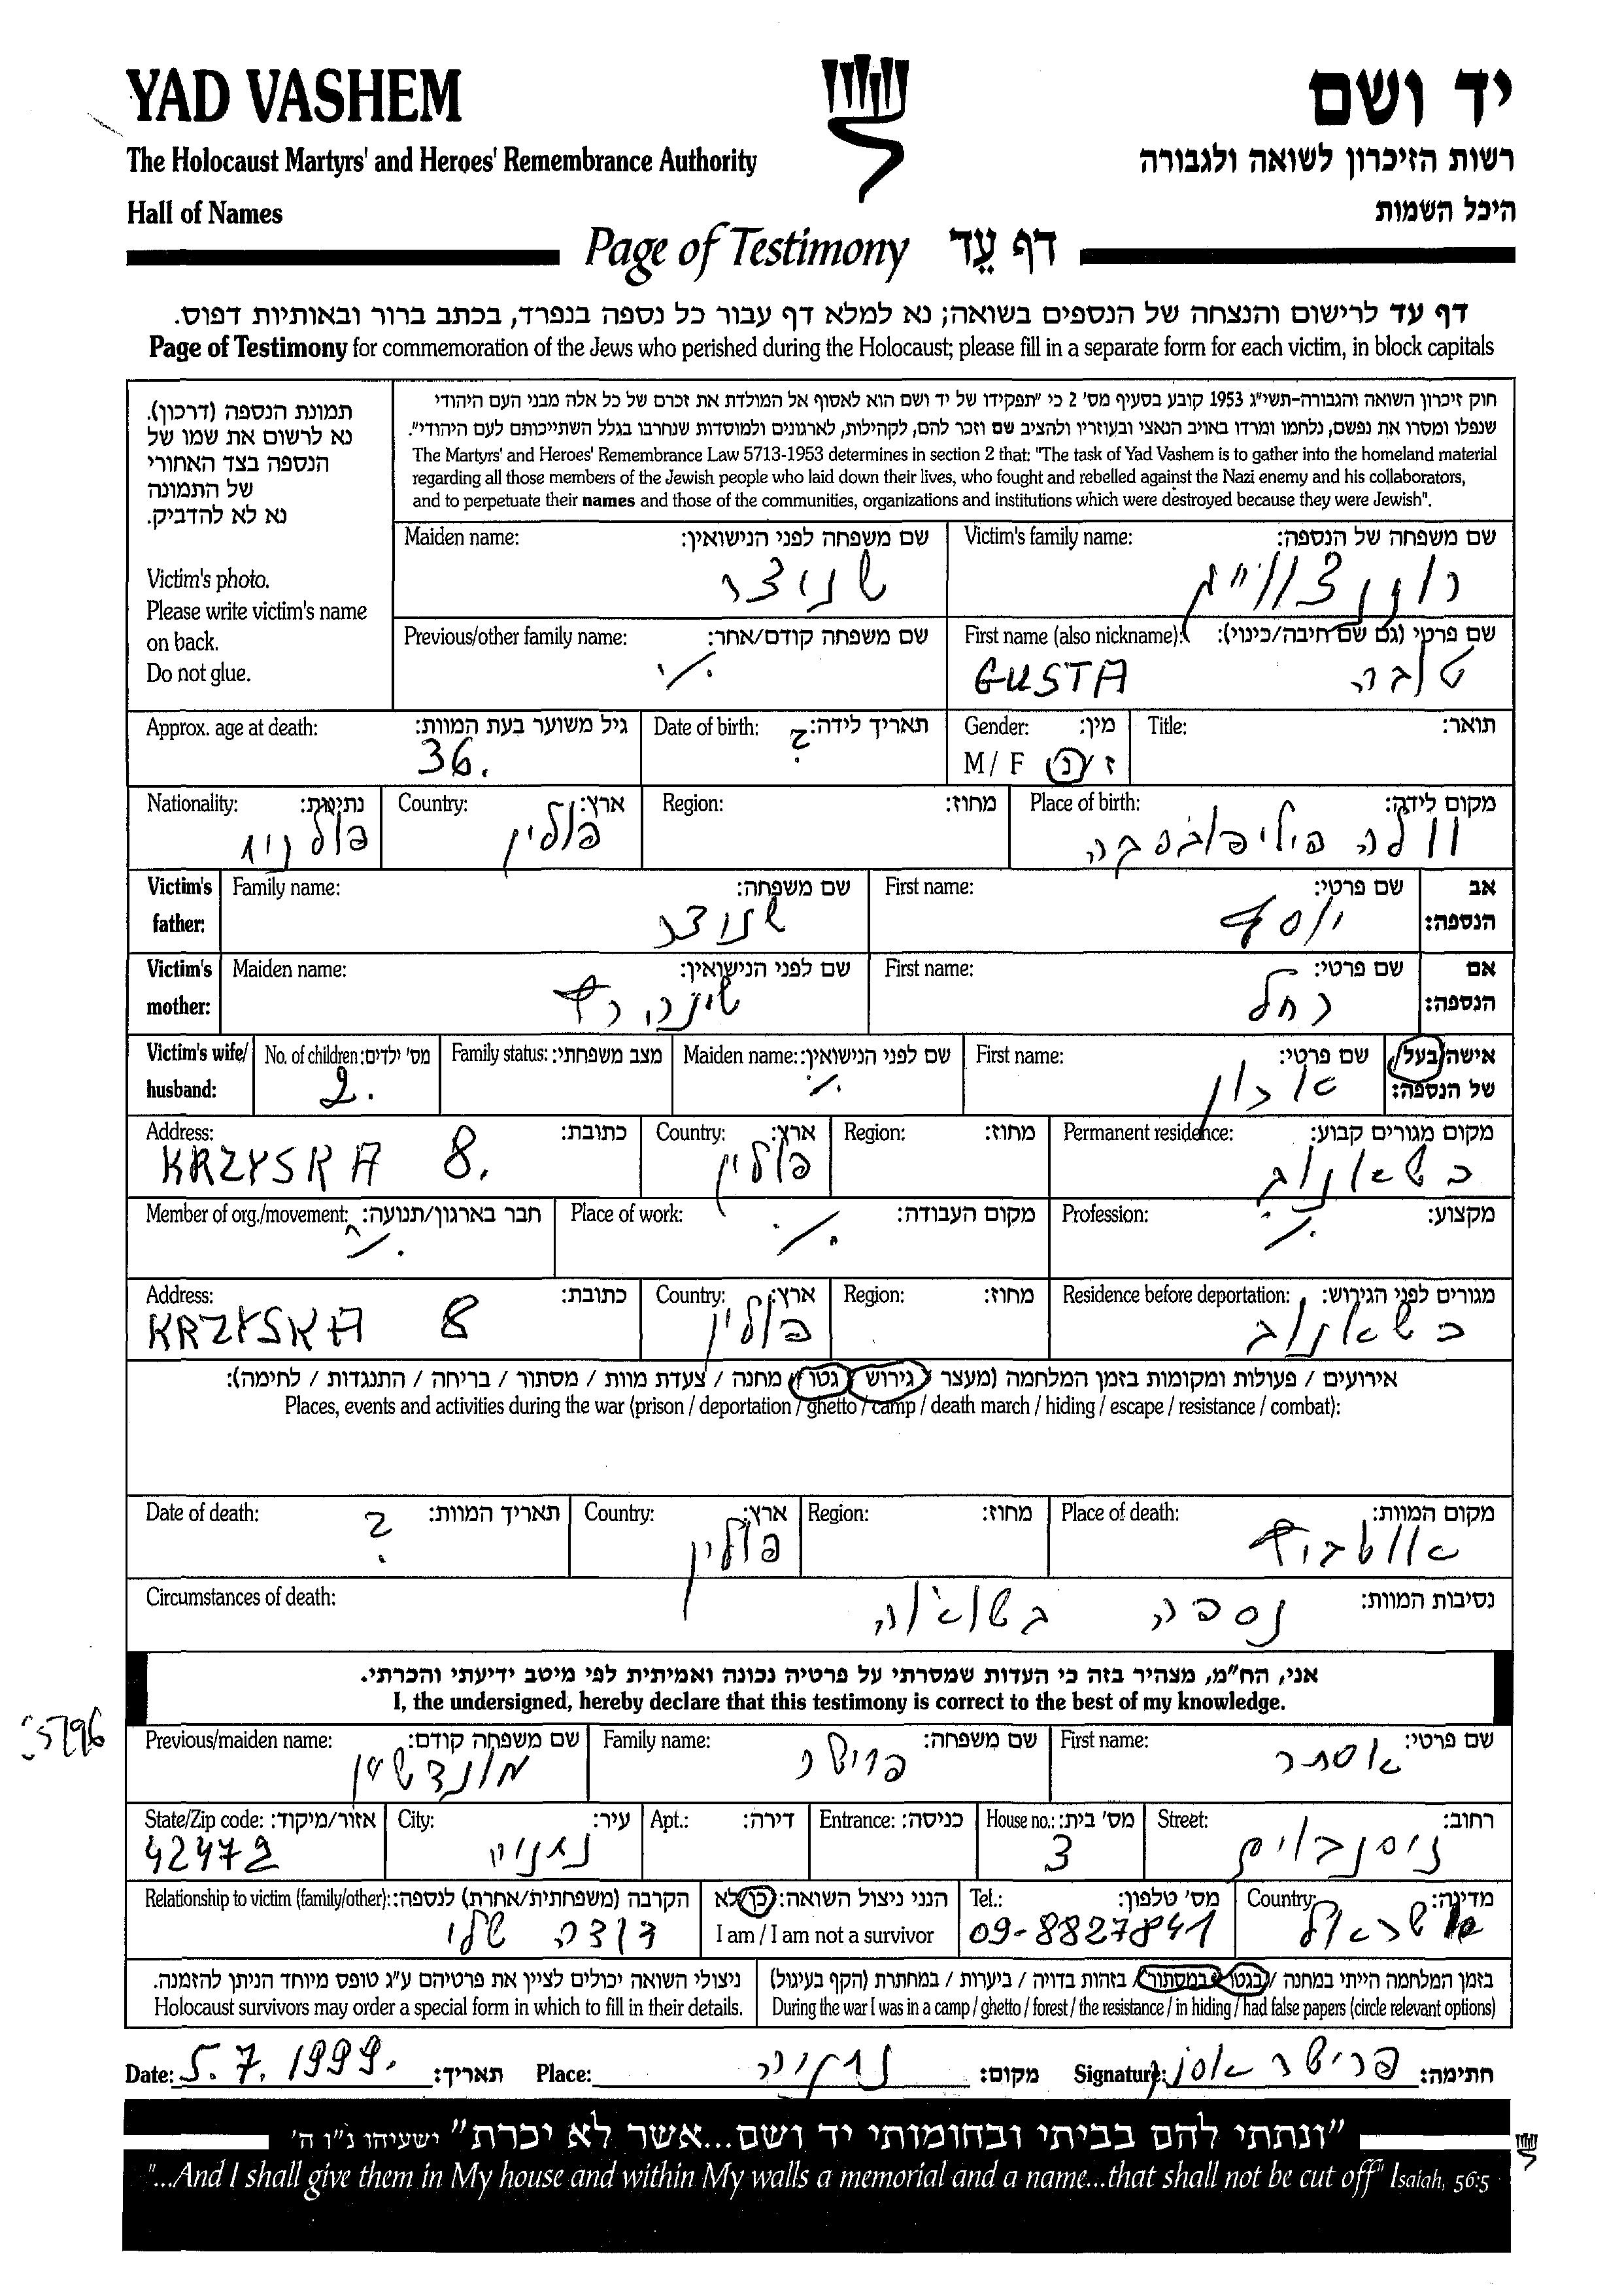 YAD VASHEM
יד ושם
The Holocaust Martyrs' and Heroes' Remembrance Authority
רשות הזיכרון לשואה ולגבורה
Hall of Names
היכל השמות
Page of Testimony דף עֵד
דף עד לרישום והנצחה של הנספים בשואה; נא למלא דף עבור כל נספה בנפרד, בכתב ברור ובאותיות דפוס.
Page of Testimony for commemoration of the Jews who perished during the Holocaust; please fill in a separate form for each victim, in block capitals
תמונת הנספה (דרכון).
נא לרשום את שמו של
הנספה בצד האחורי
של התמונה
נא לא להדביק.
Victim's photo.
Please write victim's name
on back.
Do not glue.
חוק זיכרון השואה והגבורה-תשי"ג 1953 קובע בסעיף מס' 2 כי "תפקידו של יד ושם הוא לאסוף אל המולדת את זכרם של כל אלה מבני העם היהודי
שנפלו ומסרו את נפשם, נלחמו ומרדו באויב הנאצי ובעוזריו ולהציב שם וזכר להם, לקהילות, לארגונים ולמוסדות שנחרבו בגלל השתייכותם לעם היהודי".
The Martyrs' and Heroes' Remembrance Law 5713-1953 determines in section 2 that: "The task of Yad Vashem is to gather into the homeland material
regarding all those members of the Jewish people who laid down their lives, who fought and rebelled against the Nazi enemy and his collaborators,
and to perpetuate their names and those of the communities, organizations and institutions which were destroyed because they were Jewish".
Victim's family name: שם משפחה של הנספה:
Maiden name: שם משפחה לפני הנישואין:
רוזנצווייג
שניצר
First name (also nickname): שם פרטי (גם שם חיבה/כינוי):
Previous/other family name: שם משפחה קודם/אחר:
GUSTA טובה
./.
Title: תואר:
Gender: מין:
M / F ז / נ
Date of birth: תאריך לידה:
?
Approx. age at death: גיל משוער בעת המוות:
36.
Place of birth: מקום לידה:
וולה פיליפובסקה
Region: מחוז:
Country: ארץ:
פולין
Nationality: נתינות:
פולניה
Victim's father: אב הנספה:
First name: שם פרטי:
יוסף
Family name: שם משפחה:
שניצר
Victim's mother: אם הנספה:
First name: שם פרטי:
רחל
Maiden name: שם לפני הנישואין:
Victim's wife/ husband: אישה/בעל של הנספה:
First name: שם פרטי:
אהרון
Maiden name: שם לפני הנישואין:
./.
Family status: מצב משפחתי:
No. of children: מס' ילדים:
2.
Permanent residence: מקום מגורים קבוע:
כשאנוב
Region: מחוז:
Country: ארץ:
פולין
Address: כתובת:
KRZYSKA 8.
Profession: מקצוע:
./.
Place of work: מקום העבודה:
./.
Member of org./movement: חבר בארגון/תנועה:
./.
Residence before deportation: מגורים לפני הגירוש:
כשאנוב
Region: מחוז:
Country: ארץ:
פולין
Address: כתובת:
KRZYSKA 8
אירועים / פעולות ומקומות בזמן המלחמה (מעצר / גירוש / גטו / מחנה / צעדת מוות / מסתור / בריחה / התנגדות / לחימה):
Places, events and activities during the war (prison / deportation / ghetto / camp / death march / hiding / escape / resistance / combat):
Place of death: מקום המוות:
אושביץ
Region: מחוז:
Country: ארץ:
פולין
Date of death: תאריך המוות:
?
Circumstances of death: נסיבות המוות:
נספה בשואה
אני, הח"מ, מצהיר בזה כי העדות שמסרתי על פרטיה נכונה ואמיתית לפי מיטב ידיעתי והכרתי.
I, the undersigned, hereby declare that this testimony is correct to the best of my knowledge.
First name: שם פרטי:
אסתר
Family name: שם משפחה:
פרישר
Previous/maiden name: שם משפחה קודם:
מונדשיין
Street: רחוב:
ניסנבוים
House no.: מס' בית:
3
Entrance: כניסה:
Apt.: דירה:
City: עיר:
נתניה
State/Zip code: אזור/מיקוד:
42472
Country: מדינה:
ישראל
Tel.: מס' טלפון:
09-8827841
הנני ניצול השואה: כן/לא
I am / I am not a survivor
Relationship to victim (family/other): הקרבה (משפחתית/אחרת) לנספה:
דודה שלי
בזמן המלחמה הייתי במחנה / בגטו / במסתור / בזהות בדויה / ביערות / במחתרת (הקף בעיגול)
During the war I was in a camp / ghetto / forest / the resistance / in hiding / had false papers (circle relevant options)
ניצולי השואה יכולים לציין את פרטיהם ע"ג טופס מיוחד הניתן להזמנה.
Holocaust survivors may order a special form in which to fill in their details.
Date: 5.7.1999. תאריך: Place: נתניה מקום: Signature: פרישר אסתר חתימה:
"ונתתי להם בביתי ובחומותי יד ושם...אשר לא יכרת" ישעיהו נ"ו ה'
"...And I shall give them in My house and within My walls a memorial and a name...that shall not be cut off" Isaiah, 56:5